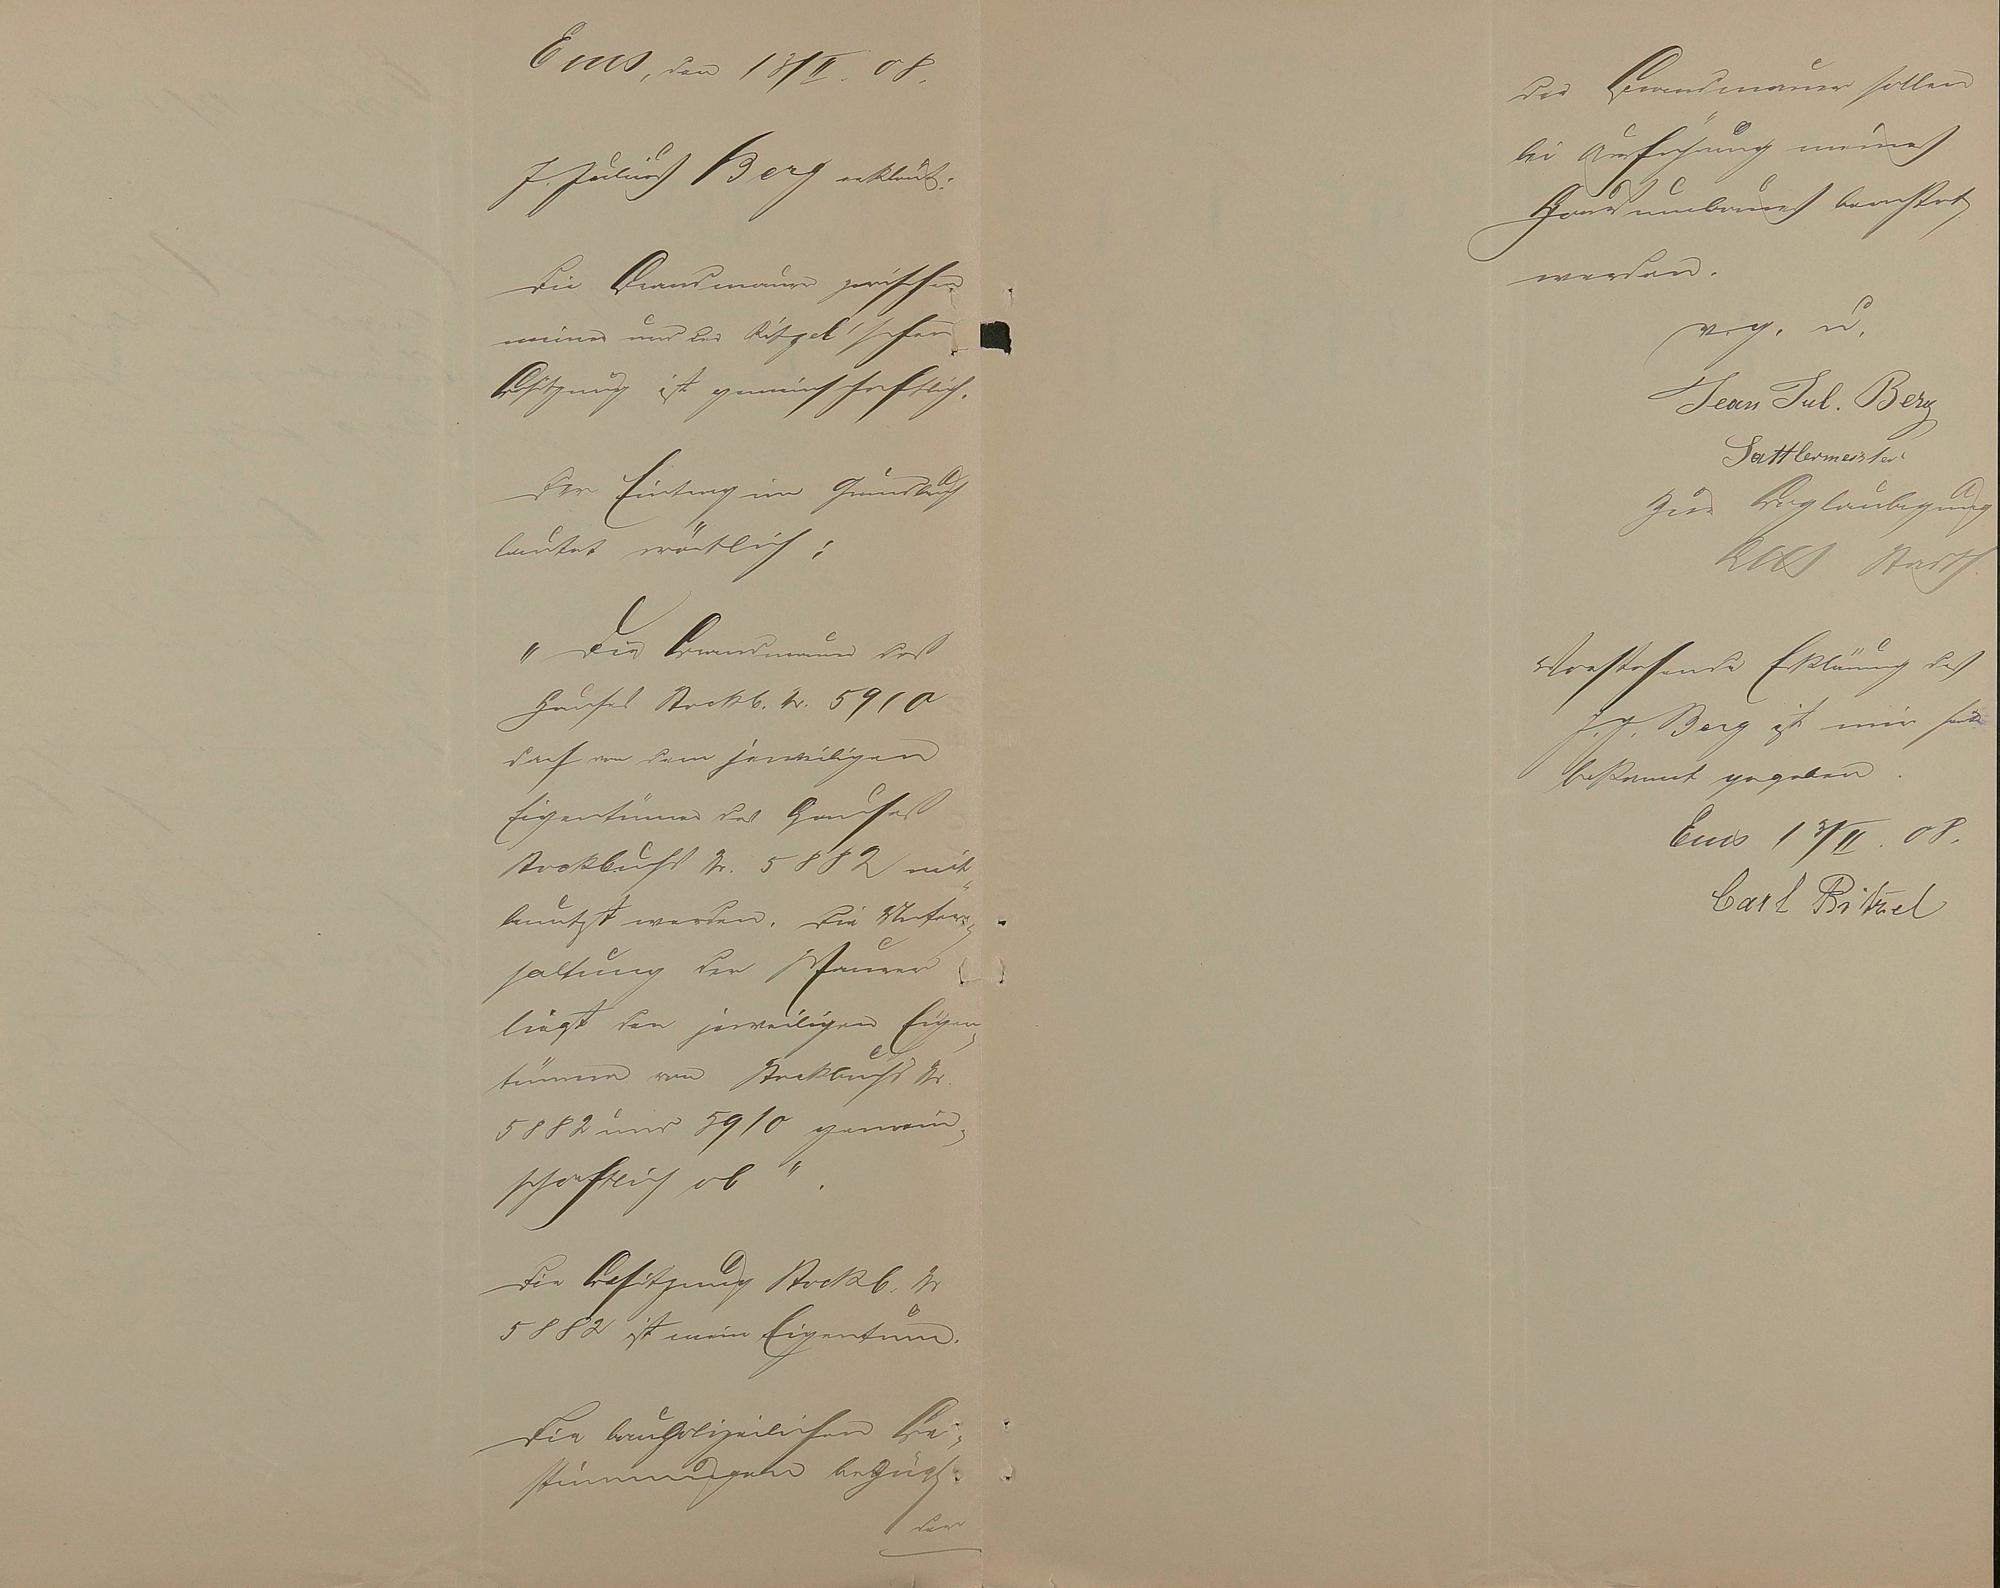 Ems, den 13/II. 08.
J. Julius Berg erklärt:
Die Brandmauer zwischen
meiner und der Ritzel'schen
Besitzung ist gemeinschaftlich.
Der Eintrag im Grundbuch
lautet wörtlich:
"Die Brandmauer des
Hauses Stockb. Nr. 5910
darf von dem jeweiligen
Eigentümer des Hauses
Stockbuchs Nr. 5882 mit-
benutzt werden. Die Unter-
haltung der Mauer
liegt den jeweiligen Eigen-
tümern von Stockbuchs Nr.
5882 und 5910 gemein-
schaftlich ob".
Die Besitzung Stockb. Nr
5882 ist mein Eigentum.
Die baupolizeilichen Be-
stimmungen bezügl.
der
der Brandmauer sollen
bei Ausführung meines
Hausumbaues beachtet
werden.
v. g. u.
Jean Jul. Berg
Sattlermeister
Zur Beglaubigung
Vorstehende Erklärung des
J. J. Berg ist mir
bekannt gegeben.
Ems 13/II. 08.
Carl Ritzel